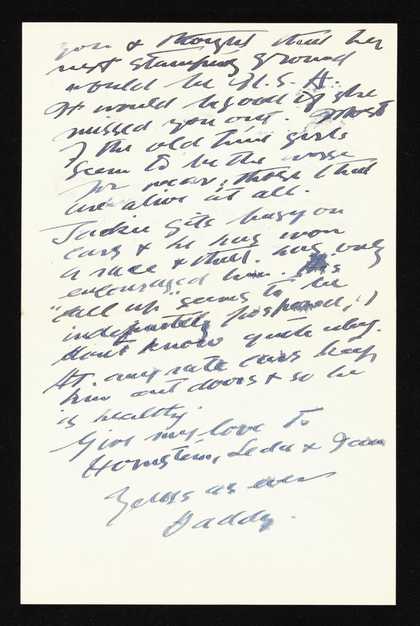 you & thought that her
next stamping ground
would be U.S.A.
It would be good if she
missed you out. Most
of the old time girls
seem to be the worse
for wear, those that
are alive at all.
Jackie gets busy on
cars & he has won
a race & that has only
encouraged him. His
"call up" seems to be
indefinitely postponed, I
don't know quite why.
At any rate cars keep
him out doors & so he
is healthy.
Give my love to
Leda &
Yours as ever
Daddy.